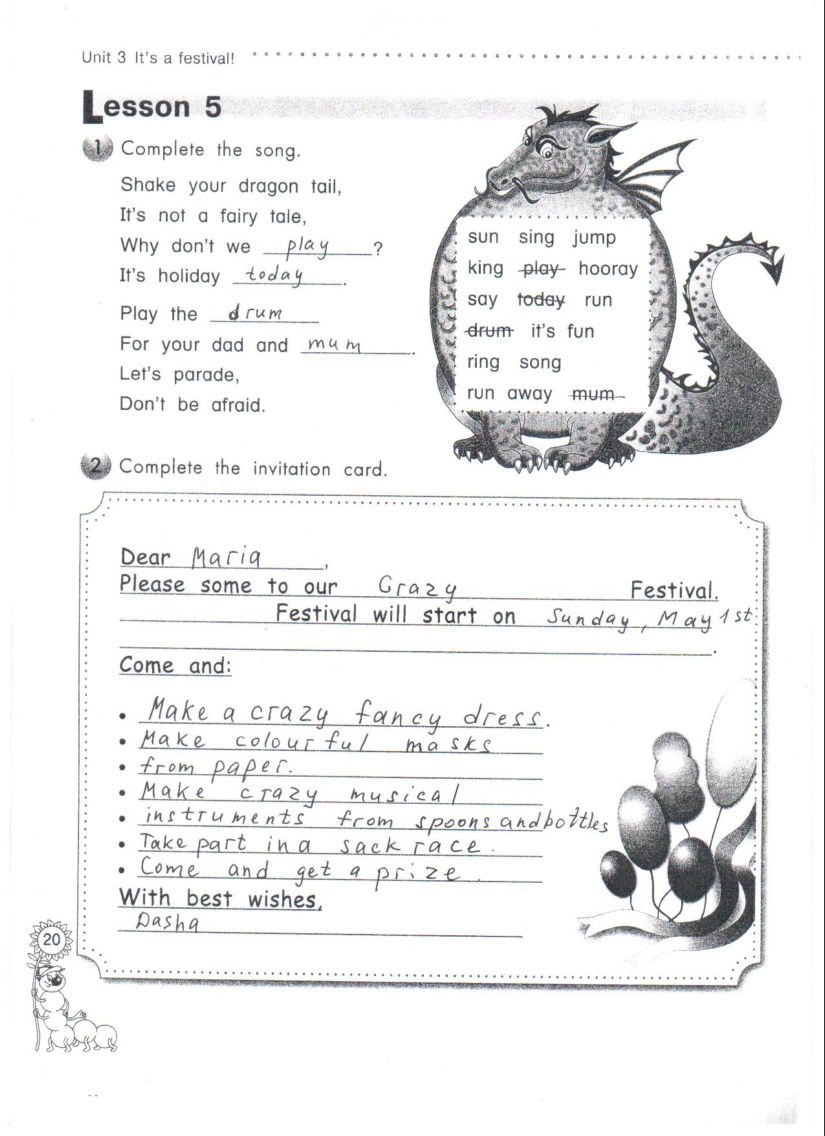 Unit 3 It's a festival!
Lesson 5
1 Complete the song.
Shake your dragon tail,
It's not a fairy tale,
Why don't we play ?
It's holiday today .
Play the drum
For your dad and mum .
Let's parade,
Don't be afraid.
sun sing jump
king play hooray
say today run
drum it's fun
ring song
run away mum
2 Complete the invitation card.
Dear Maria ,
Please some to our Crazy Festival.
Festival will start on Sunday, May 1st
.
Come and:
• Make a crazy fancy dress.
• Make colourful masks
• from paper.
• Make crazy musical
• instruments from spoons and bottles
• Take part in a sack race.
• Come and get a prize.
With best wishes,
Dasha
20